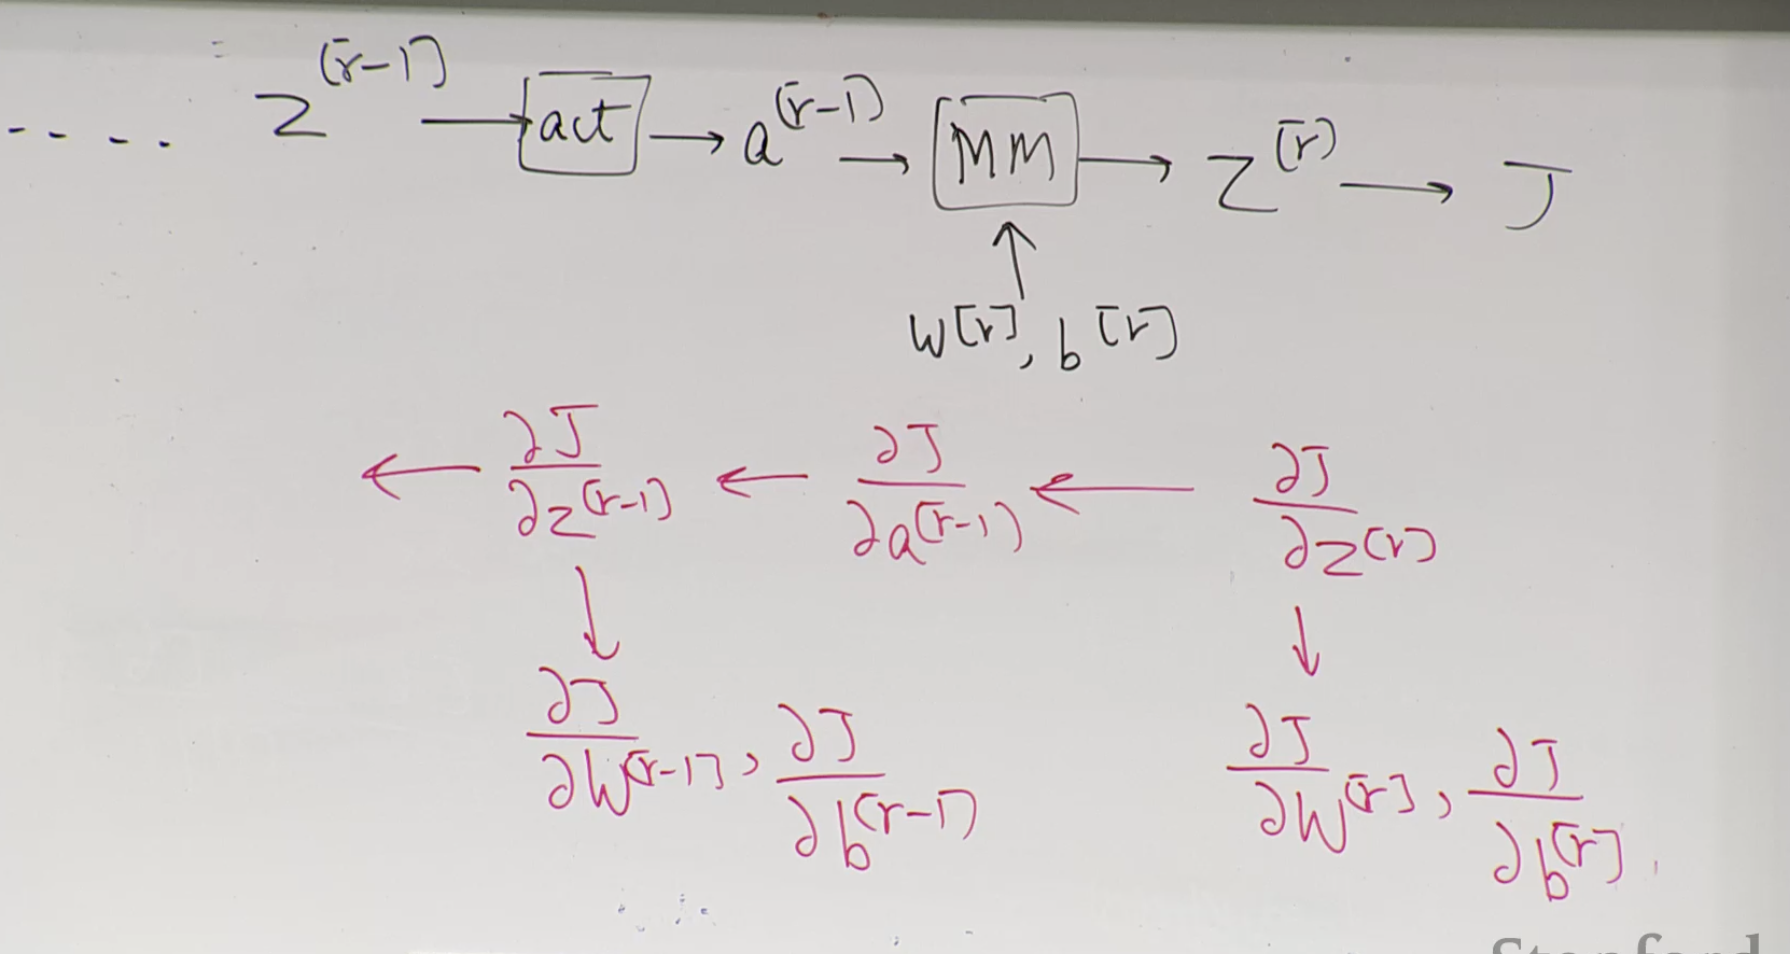 .... z^[r-1] → act → a^[r-1] → MM → z^[r] → J
↑
W^[r], b^[r]
← ∂J/∂z^[r-1] ← ∂J/∂a^[r-1] ← ∂J/∂z^[r]
↓ ↓
∂J/∂W^[r-1], ∂J/∂b^[r-1] ∂J/∂W^[r], ∂J/∂b^[r].
Stanford